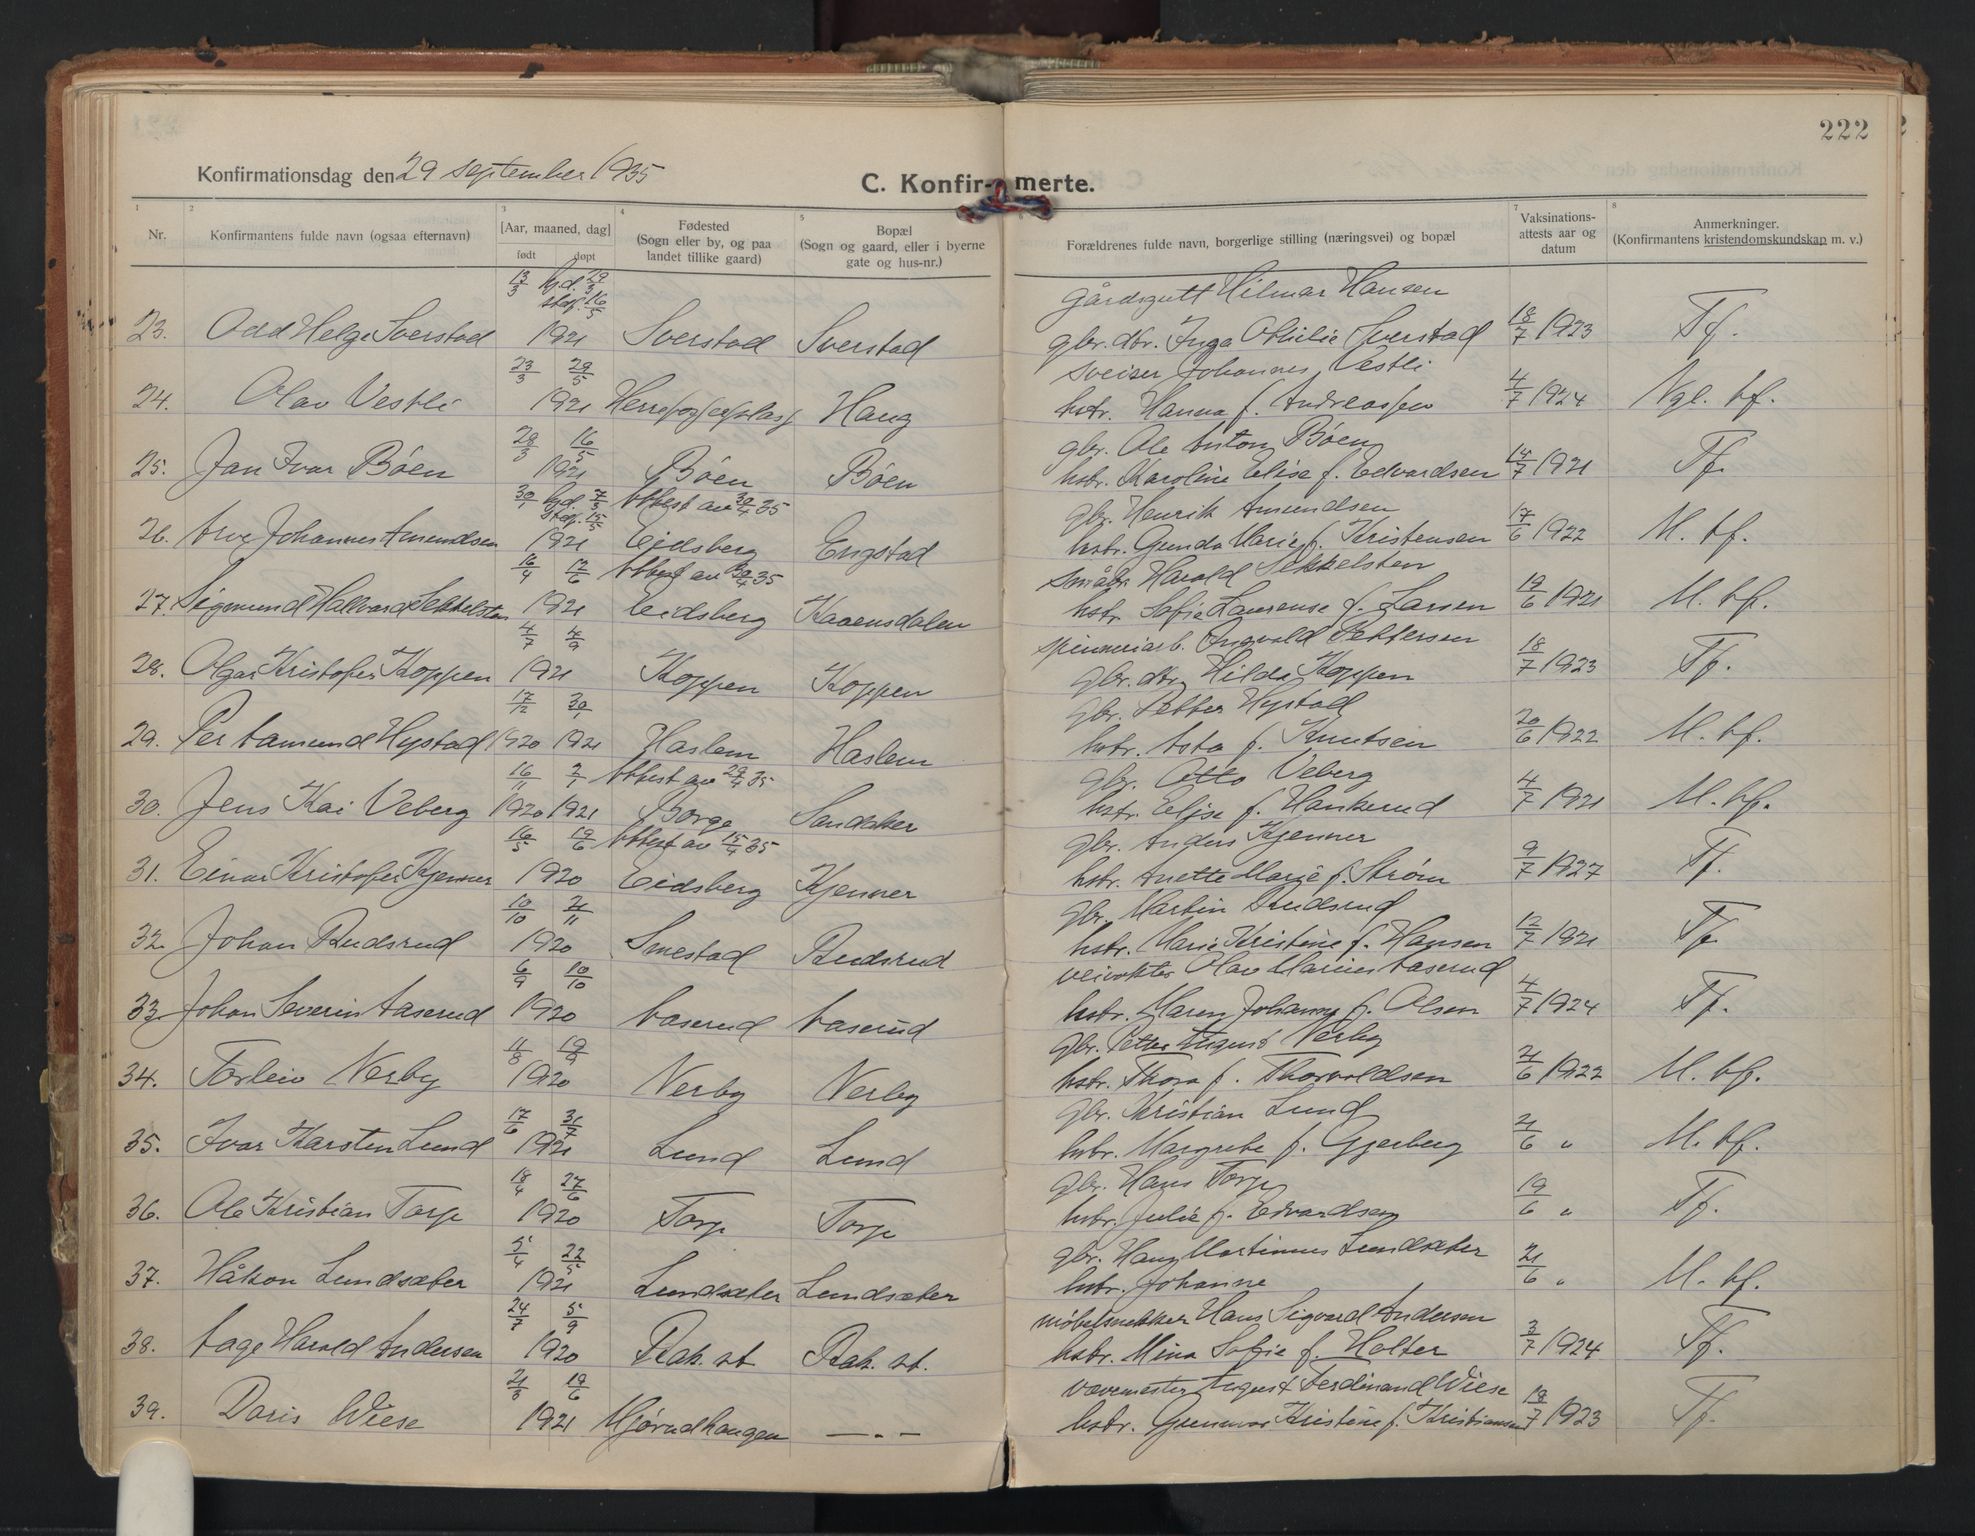 222
Konfirmationsdag den 29 september 1935
C. Konfir- merte.
1 2 3 4 5 6 7 8
Nr.
Konfirmantens fulde navn (ogsaa efternavn)
[Aar, maaned, dag]
født døpt
Fødested
(Sogn eller by, og paa
landet tillike gaard)
Bopæl
(Sogn og gaard, eller i byerne
gate og hus-nr.)
Forældrenes fulde navn, borgerlige stilling (næringsvei) og bopæl
Vaksinations-
attests aar og
datum
Anmerkninger.
(Konfirmantens kristendomskundskap m. v.)
13/3 hjd. 29/3 stadf. 16/5 gårdsgutt Hilmar Hansen
23. Odd Helge Sverstad 1921 Sverstad Sverstad gbr. dtr. Inga Othilie Sverstad 18/7 1923 Tf.
23/3 29/5 sveiser Johannes Vestli
24. Olav Vestli 1921 Haug hstr. Hanna f. Andreassen 4/7 1924 Ngl. tf.
28/3 16/5 gbr. Ole Anton Bøen
25. Jan Ivar Bøen 1921 Bøen Bøen hstr. Karoline Elise f. Edvardsen 14/7 1921 Tf.
30/1 hjd. 7/3 stadf. 15/5 Attest av 30/4 35 gbr. Henrik Amundsen
26. Arve Johannes Amundsen 1921 Eidsberg Engstad hstr. Gunda Marie f. Kristensen 17/6 1922 M. tf.
16/4 12/6 Attest av 30/4 35 småbr. Harald Sekkelsten
27. Sigmund Hallvard Sekkelsten 1921 Eidsberg Kaaensdalen hstr. Sofie Laurense f. Larsen 19/6 1921 M. tf.
4/7 4/9 spinneriarb. Ingvald Pettersen
28. Olgar Kristofer Koppen 1921 Koppen Koppen gbr. dtr. Hilda Koppen 18/7 1923 Tf.
17/12 30/1 gbr. Petter Hystad
29. Per Aamund Hystad 1920 1921 Haslem Haslem hstr. Asta f. Knutsen 20/6 1922 M. tf.
16/11 2/1 Attest av 29/4 35 gbr. Otto Veberg
30. Jens Kai Veberg 1920 1921 Borge Sandaker hstr. Elise f. Hankerud 4/7 1921 M. tf.
16/5 19/6 Attest av 15/4 35 gbr. Anders Kjenner
31. Einar Kristofer Kjenner 1920 Eidsberg Kjenner hstr. Anette Marie f. Strøm 9/7 1927 Tf.
10/10 21/11 gbr. Martin Rudsrud
32. Johan Rudsrud 1920 Smestad Rudsrud hstr. Marie Kristine f. Hansen 12/7 1921 Tf.
6/9 10/10 veivokter Olav Marius Aaserud
33. Johan Severin Aaserud 1920 Aaserud Aaserud hstr. Maren Johanne f. Olsen 4/7 1924 Tf.
11/8 19/9 gbr. Petter August Nerby
34. Torleiv Nerby 1920 Nerby Nerby hstr. Thora f. Thorvaldsen 21/6 1922 M. tf.
17/6 31/7 gbr. Kristian Lund
35. Ivar Karsten Lund 1921 Lund Lund hstr. Margrete f. Gjerberg 21/6 " M. tf.
18/4 27/6 gbr. Hans Torp
36. Ole Kristian Torp 1920 Torp Torp hstr. Julie f. Edvardsen 19/6 " Tf.
5/4 22/5 gbr. Hans Martinius Lundsæter
37. Håkon Lundsæter 1921 Lundsæter Lundsæter hstr. Johanne 21/6 " M. tf.
24/7 5/9 møbelsnekker Hans Sigvard Andersen
38. Aage Harald Andersen 1920 Rak. st. Rak. st. hstr. Mina Sofie f. Holter 3/7 1924 Tf.
21/3 19/6 vævemester August Ferdinand Wiese
39. Doris Wiese 1921 Mjørudhaugen —"— hstr. Gunnvor Kristine f. Kristiansen 18/7 1923 Tf.